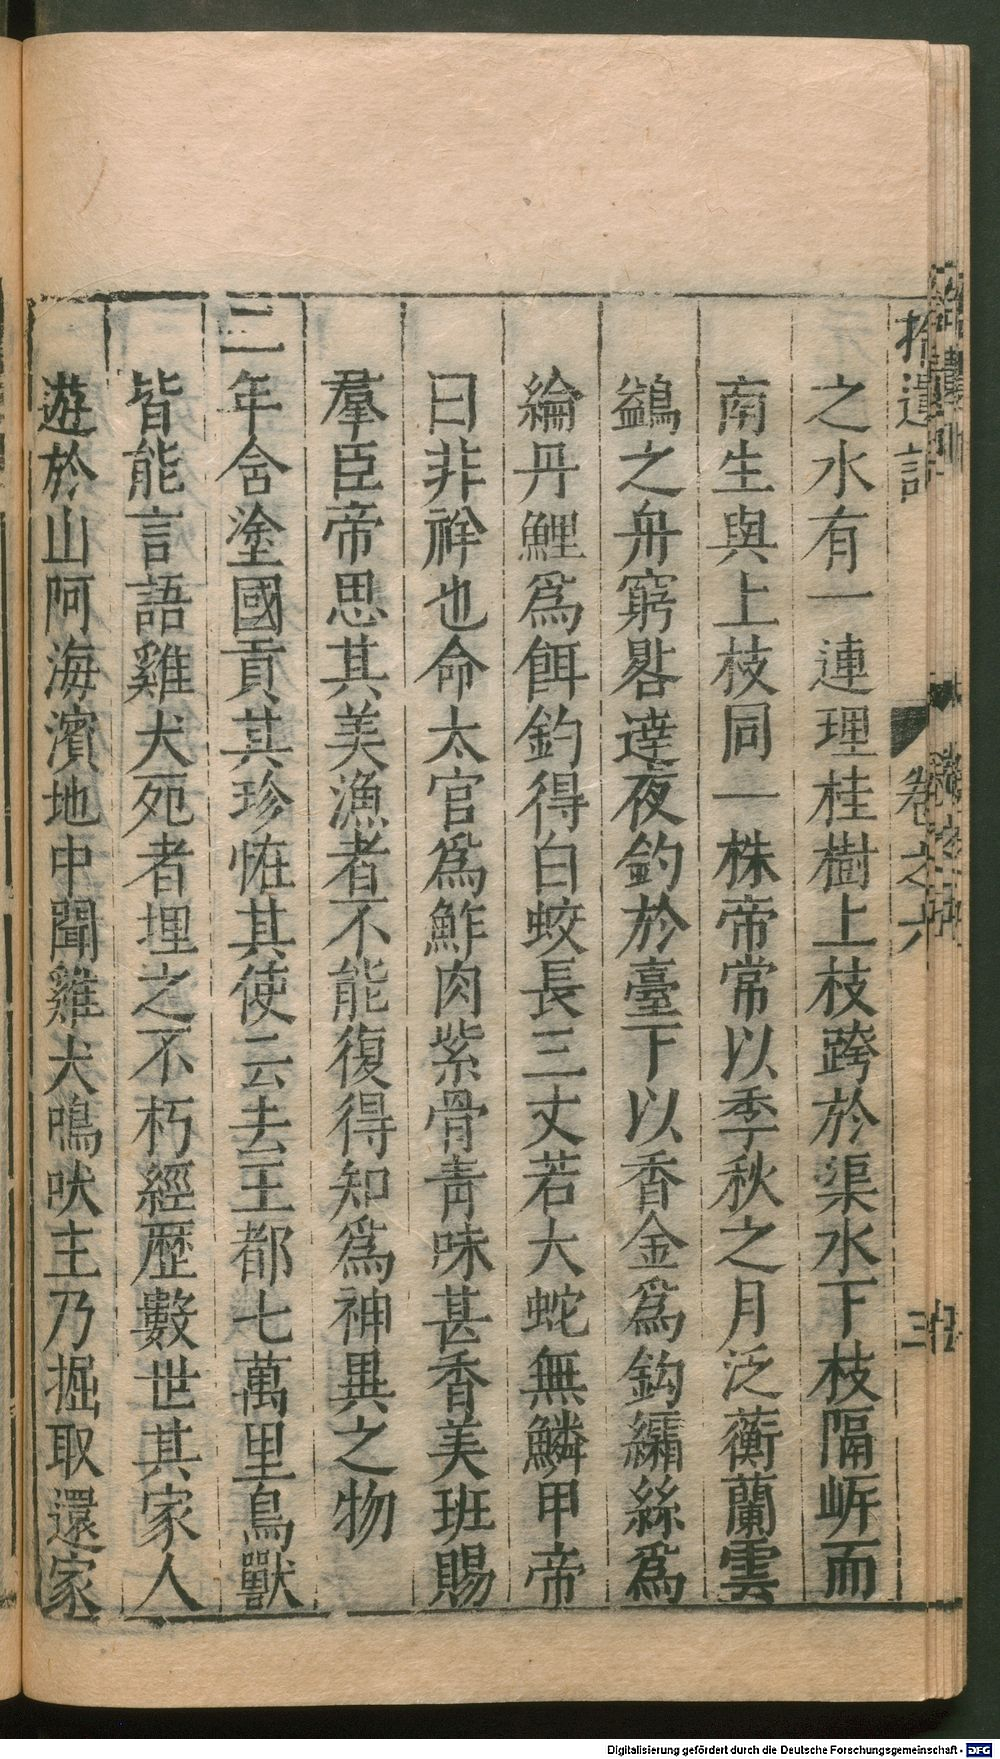 拾遺記
卷之六
三
之水有一連理桂樹上枝跨於渠水下枝隔岍而
南生與上枝同一株帝常以季秋之月泛蘅蘭雲
鷁之舟窮晷達夜釣於臺下以香金爲鈎繘絲爲
綸丹鯉爲餌釣得白蛟長三丈若大蛇無鱗甲帝
曰非祥也命太官爲鮓肉紫骨青味甚香美班賜
羣臣帝思其美漁者不能復得知爲神異之物
二年含塗國貢其珍恠其使云去王都七萬里鳥獸
皆能言語雞犬死者埋之不朽經歷數世其家人
遊於山阿海濱地中聞雞犬鳴吠主乃掘取還家
Digitalisierung gefördert durch die Deutsche Forschungsgemeinschaft - DFG